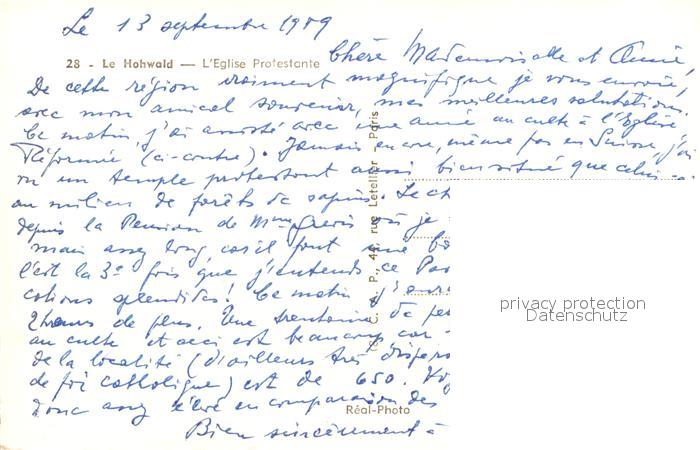 Le 13 septembre 1959
28 - Le Hohwald — L'Eglise Protestante
Chère Mademoiselle et Amie,
De cette région vraiment magnifique je vous envoie,
avec mon amical souvenir, mes meilleures salutations.
Ce matin, j'ai assisté avec une amie au culte à l'Eglise
Réformée (ci-contre). Jamais encore, même pas en Suisse, j'ai
vu un temple protestant aussi bien situé que celui-ci
au milieu de forêts de sapins. Le ch
depuis la Pension de Mme où je
mais assez long, car il faut une
C'est la 3e fois que j'entends ce Pas
cations splendides! Ce matin j'
2 heures de plus. Une trentaine de pe
au culte et ceci est beaucoup car
de la localité (d'ailleurs très
de foi catholique) est de 650.
donc assez élevé en comparaison des
Bien sincèrement à
C. A. P., 44, rue Letellier - Paris
Réal-Photo
privacy protection
Datenschutz